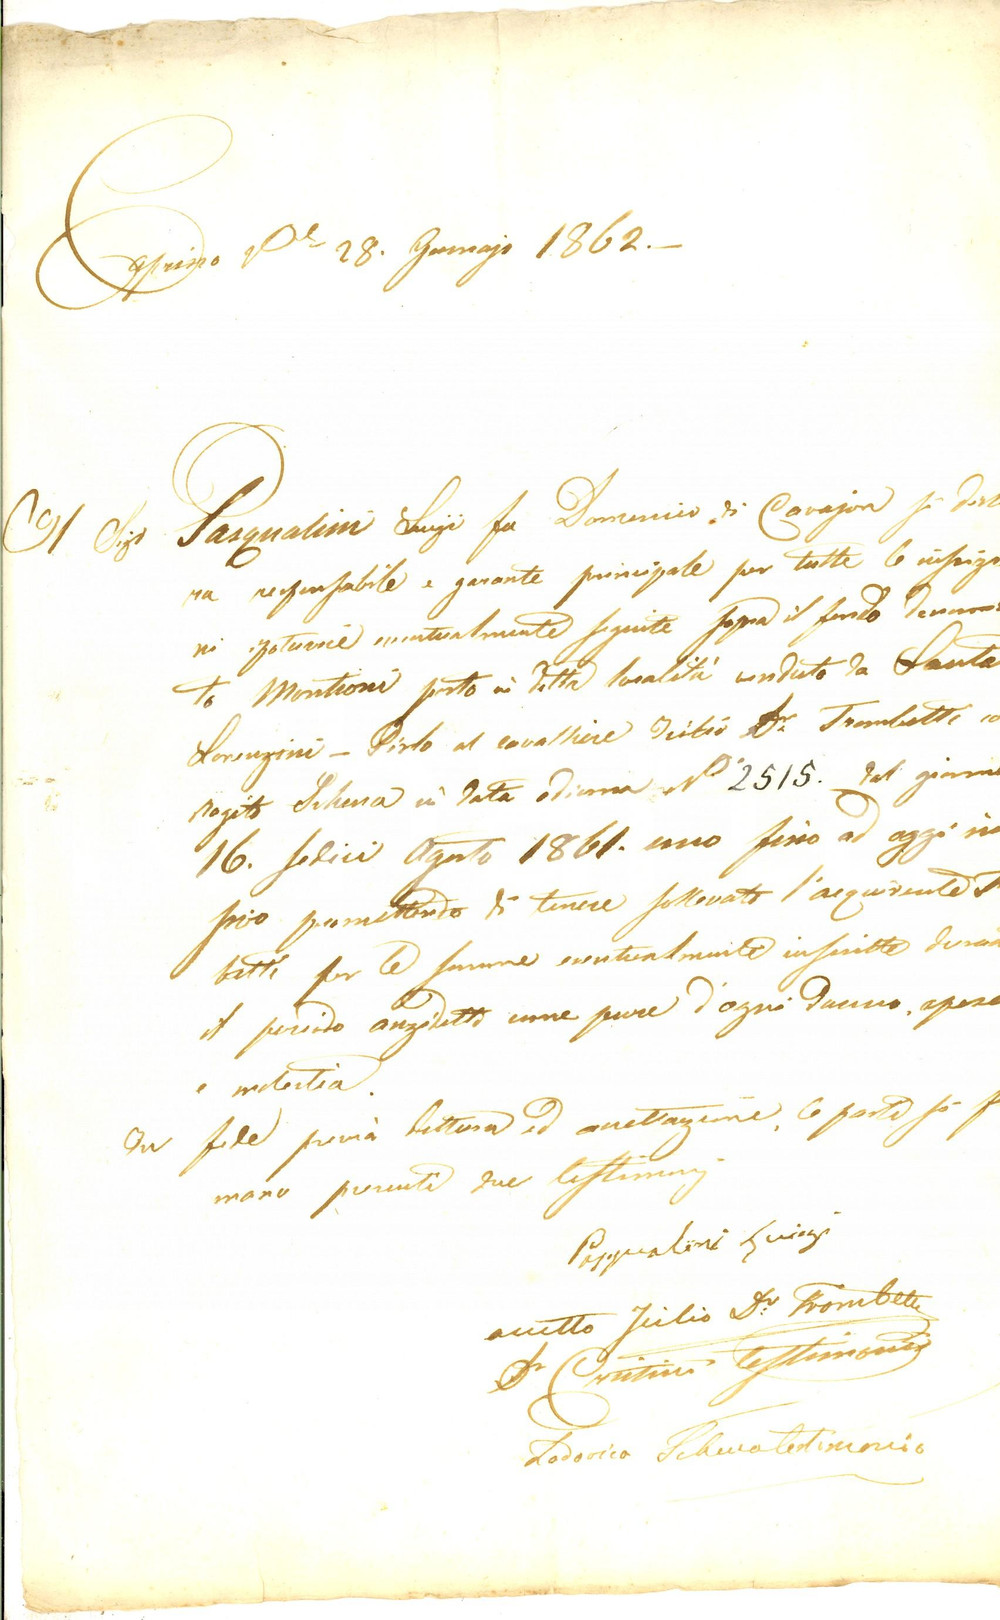 Caprino V.le 28. Gennajo 1862.—
Il Sig.r Pasqualini Luigi fu Domenico di Cavajon si dichia
ra responsabile e garante principale per tutte le inscrizio
ni ipotecarie eventualmente seguite sopra il fondo denomina
to Montioni posto in detta località venduto da Santa
Lorenzini - Pirlo al cavalliere Giulio Dr. Trombetti
rogito Schena in data odierna al N.o 2515. dal giorno
16. sedici Agosto 1861. uno fino ad oggi
sivo promettendo di tenere sollevato l'acquirente Trom
betti per le somme eventualmente inscritte durante
il periodo anzidetto come pure d'ogni danno, spesa
e molestia.
In fede previa lettura ed accettazione, le parti si
mano presenti due testimonj
Pasqualini Luigi
accetto Giulio Dr. Trombetti
Dr testimonio
Lodovico Schena testimonio